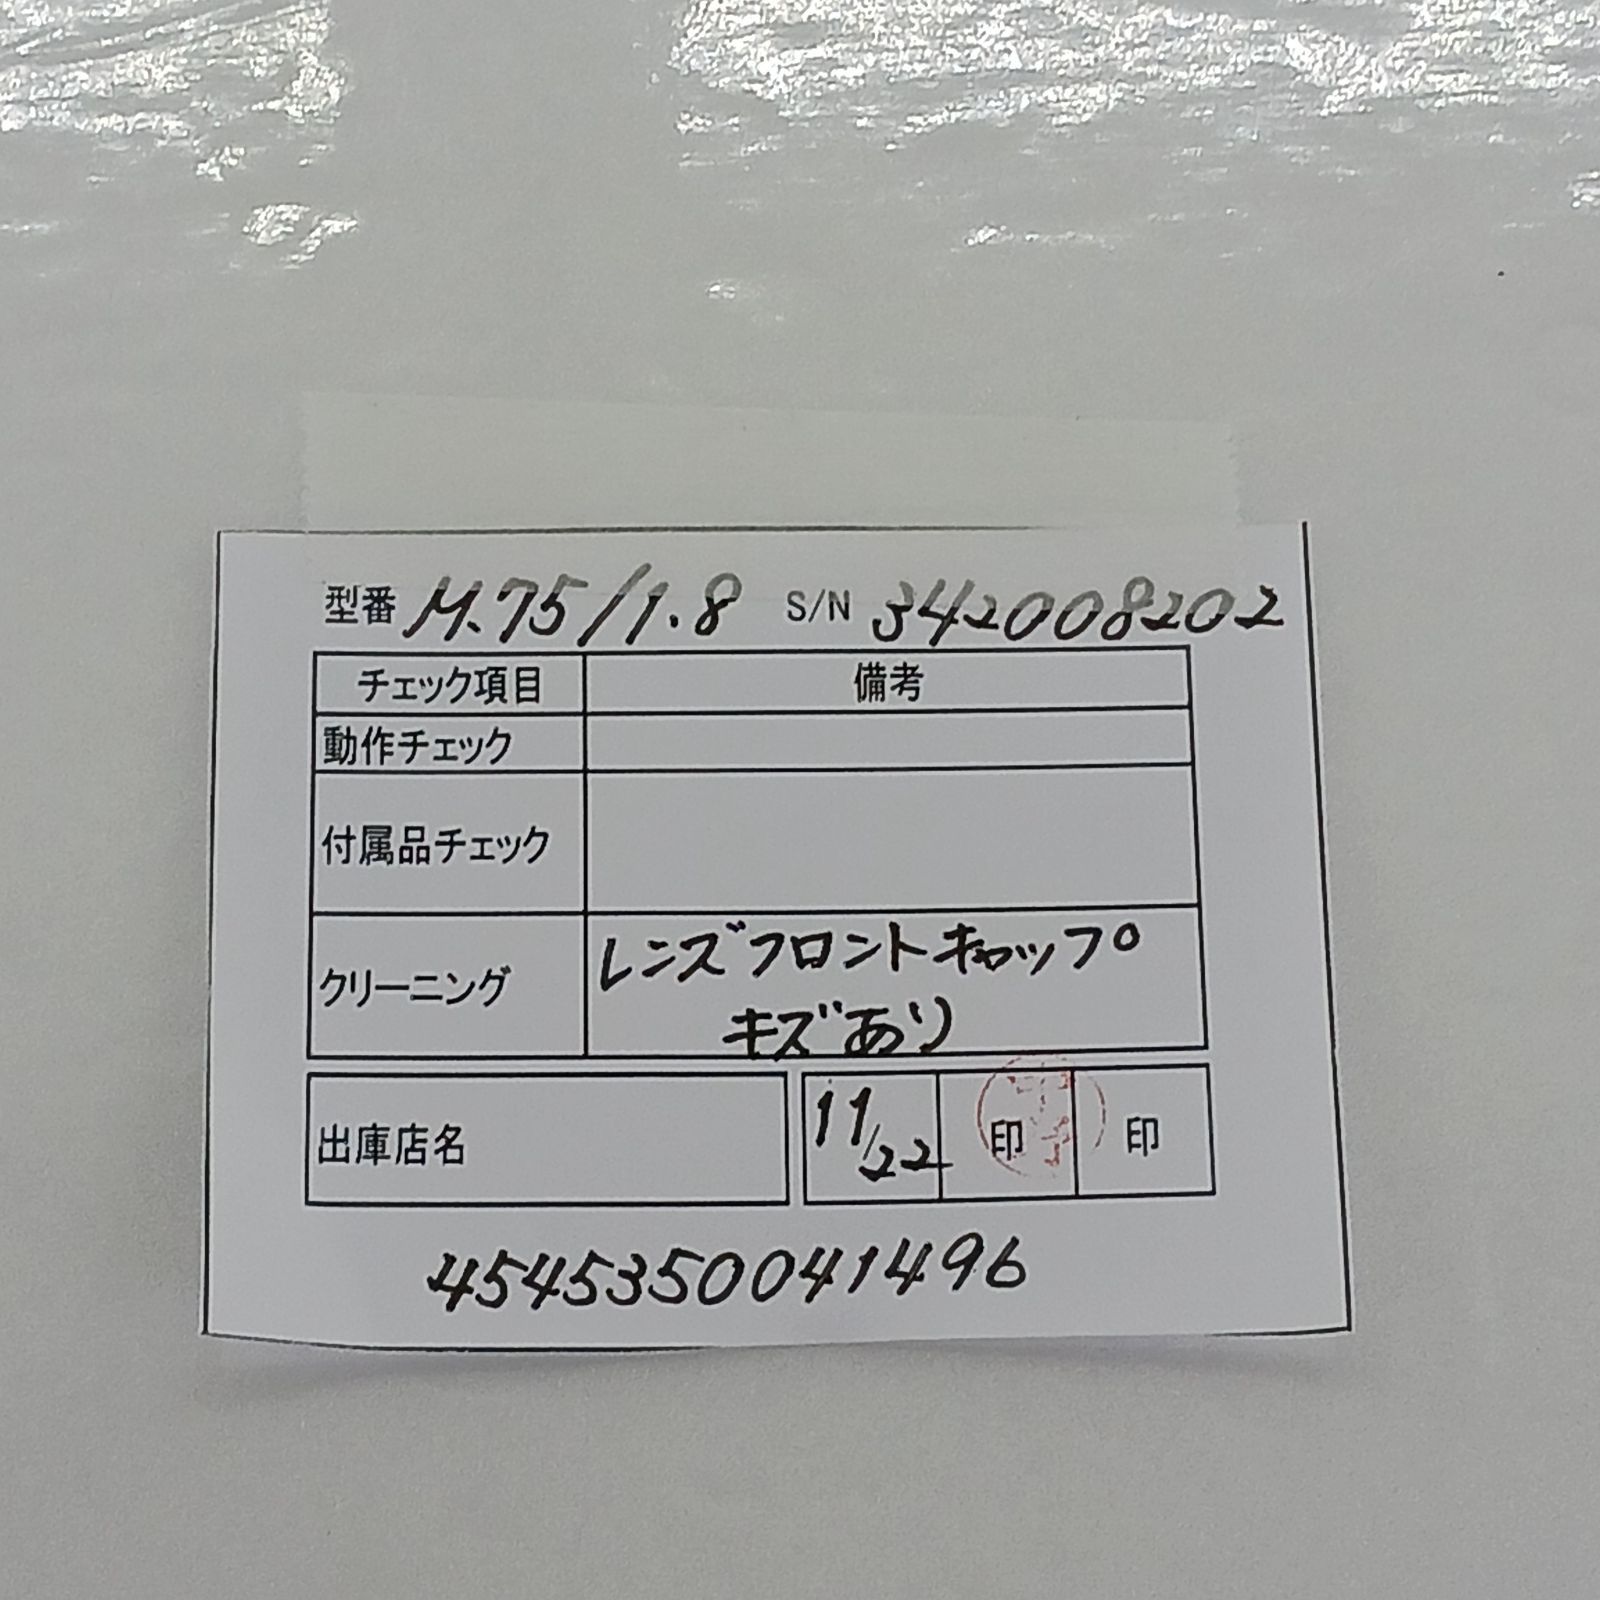 型番 M.75/1.8 S/N 342008202
チェック項目 備考
動作チェック
付属品チェック
クリーニング レンズフロントキャップ
キズあり
出庫店名 11/22 印 印
4545350041496